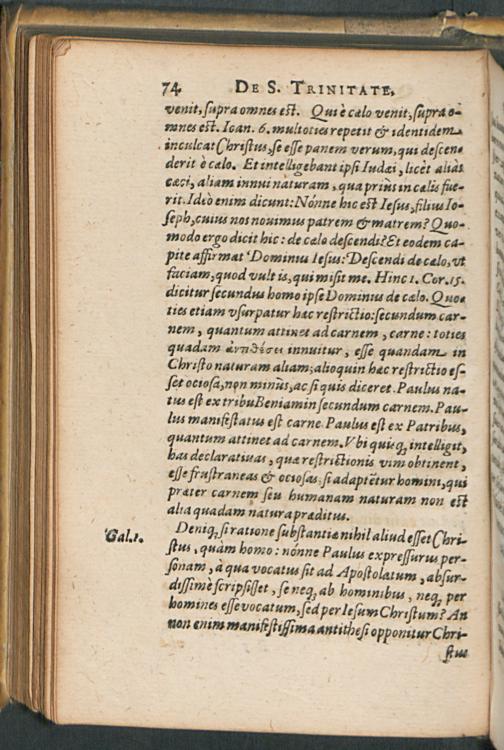 74 DE S. TRINITATE,
venit, supra omnes est. Qui è cœlo venit, supra o-
mnes est. Ioan. 6. multoties repetit & identidem
inculcat Christus, se esse panem verum, qui descen-
derit è cœlo. Et intelligebant ipsi Iudæi, licèt aliàs
cæci, aliam innui naturam, qua priùs in cœlis fue-
rit. Ideò enim dicunt: Nónne hic est Iesus, filius Io-
seph, cuius nos novimus patrem & matrem? Quo-
modo ergo dicit hic: de cælo descendi? Et eodem ca-
pite affirmat Dominus Iesus: Descendi de cælo, vt
faciam, quod vult is, qui misit me. Hinc 1. Cor. 15.
dicitur secundus homo ipse Dominus de cælo. Quo-
ties etiam vsurpatur hac restrictio: secundum car-
nem, quantum attinet ad carnem, carne: toties
quadam ἀντιθέσει innuitur, esse quandam in
Christo naturam aliam; alioquin hac restrictio es-
set ociosa, non minùs, ac si quis diceret. Paulus na-
tus est ex tribu Beniamin secundum carnem. Pau-
lus manifestatus est carne. Paulus est ex Patribus,
quantum attinet ad carnem. Vbi quisq; intelligit,
has declarativas, quæ restrictionis vim obtinent,
esse frustraneas & ociosas, si adaptẽtur homini, qui
præter carnem seu humanam naturam non est
alia quadam natura præditus.
Gal. 1. Deniq; si ratione substantiæ nihil aliud esset Chri-
stus, quàm homo: nónne Paulus expressurus per-
sonam, à qua vocatus sit ad Apostolatum, absur-
dissimè scripsisset, se neq; ab hominibus, neq; per
homines esse vocatum, sed per Iesum Christum? An
non enim manifestissima antithesi opponitur Chri-
stus